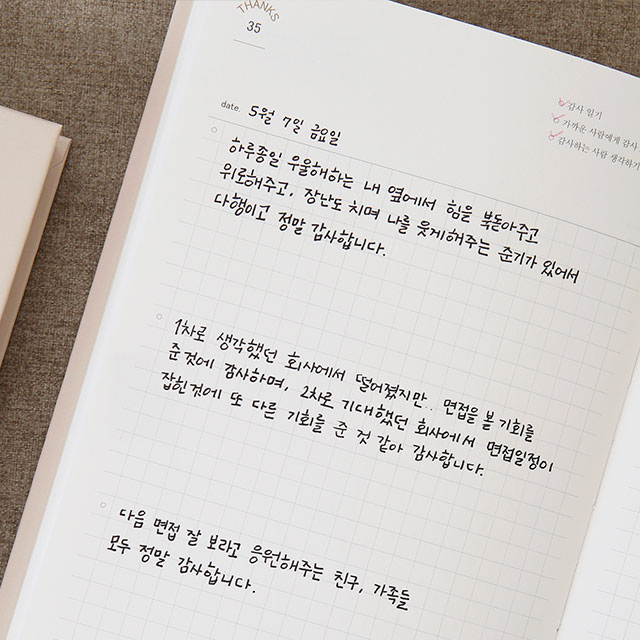 THANKS
35
감사 일기
가까운 사람에게 감사
감사하는 사람 생각하기
date. 5월 7일 금요일
하루종일 우울해하는 내 옆에서 힘을 북돋아주고
위로해주고, 장난도 치며 나를 웃게해주는 준기가 있어서
다행이고 정말 감사합니다.
1차로 생각했던 회사에서 떨어졌지만.. 면접을 볼 기회를
준것에 감사하며, 2차로 기대했던 회사에서 면접일정이
잡힌것에 또 다른 기회를 준 것 같아 감사합니다.
다음 면접 잘 보라고 응원해주는 친구, 가족들
모두 정말 감사합니다.